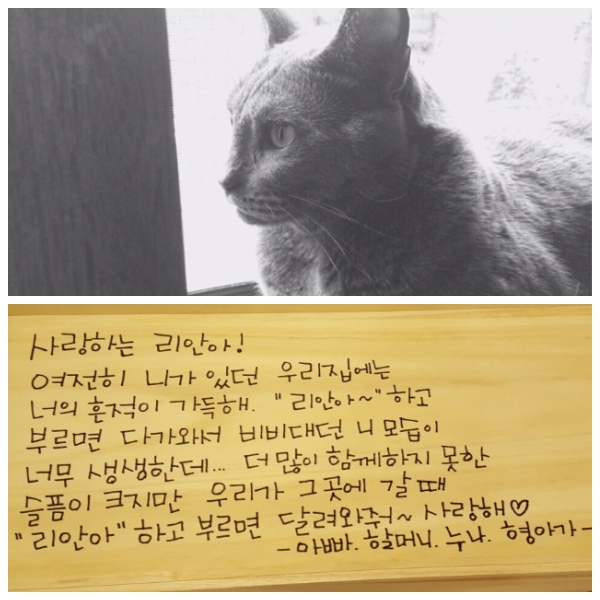 사랑하는 리안아!
여전히 니가 있던 우리집에는
너의 흔적이 가득해. "리안아~" 하고
부르면 다가와서 비비대던 니 모습이
너무 생생한데... 더 많이 함께하지 못한
슬픔이 크지만 우리가 그곳에 갈 때
"리안아" 하고 부르면 달려와줘~ 사랑해♡
- 아빠. 할머니. 누나. 형아가 -